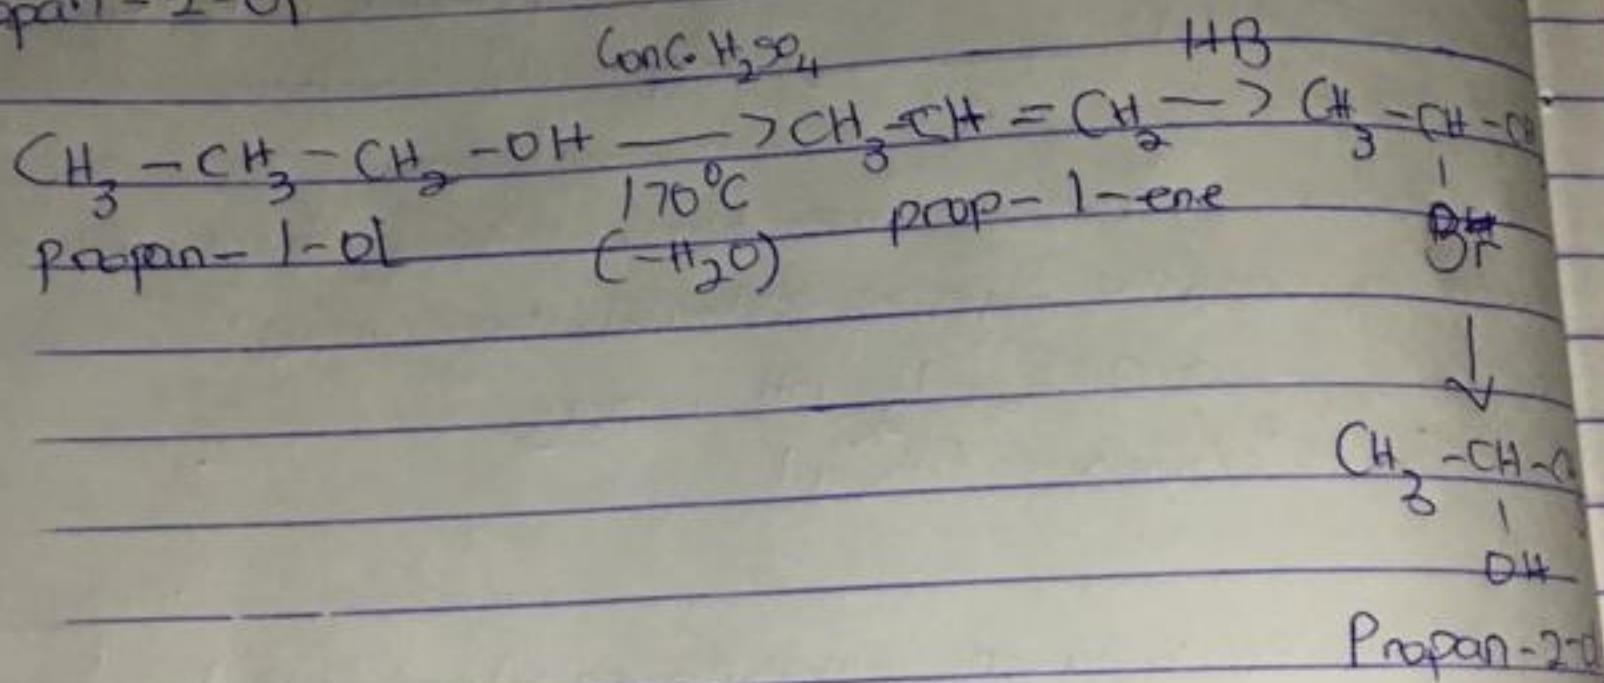 Conc. H₂SO₄ HB
CH₃ – CH₃ – CH₂ – OH —> CH₃ – CH = CH₂ —> CH₃ – CH –
170°C
|
propan – 1 – ol (–H₂O) prop – 1 – ene Br
↓
CH₃ – CH –
|
OH
Propan – 2 –